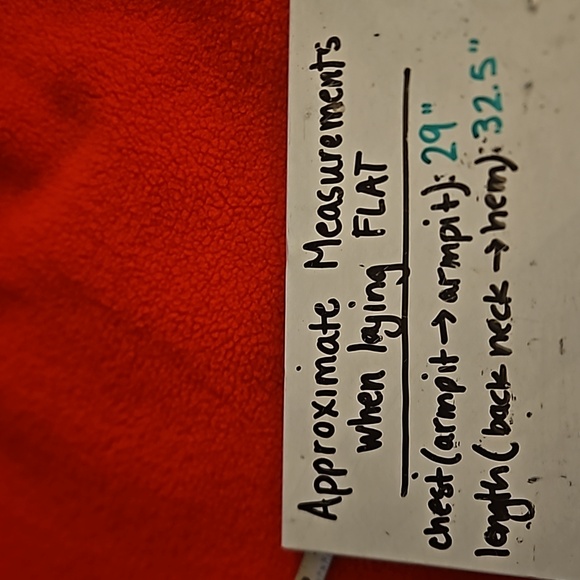 Approximate Measurements
when laying FLAT
chest (armpit → armpit): 29"
length (back neck → hem): 32.5"